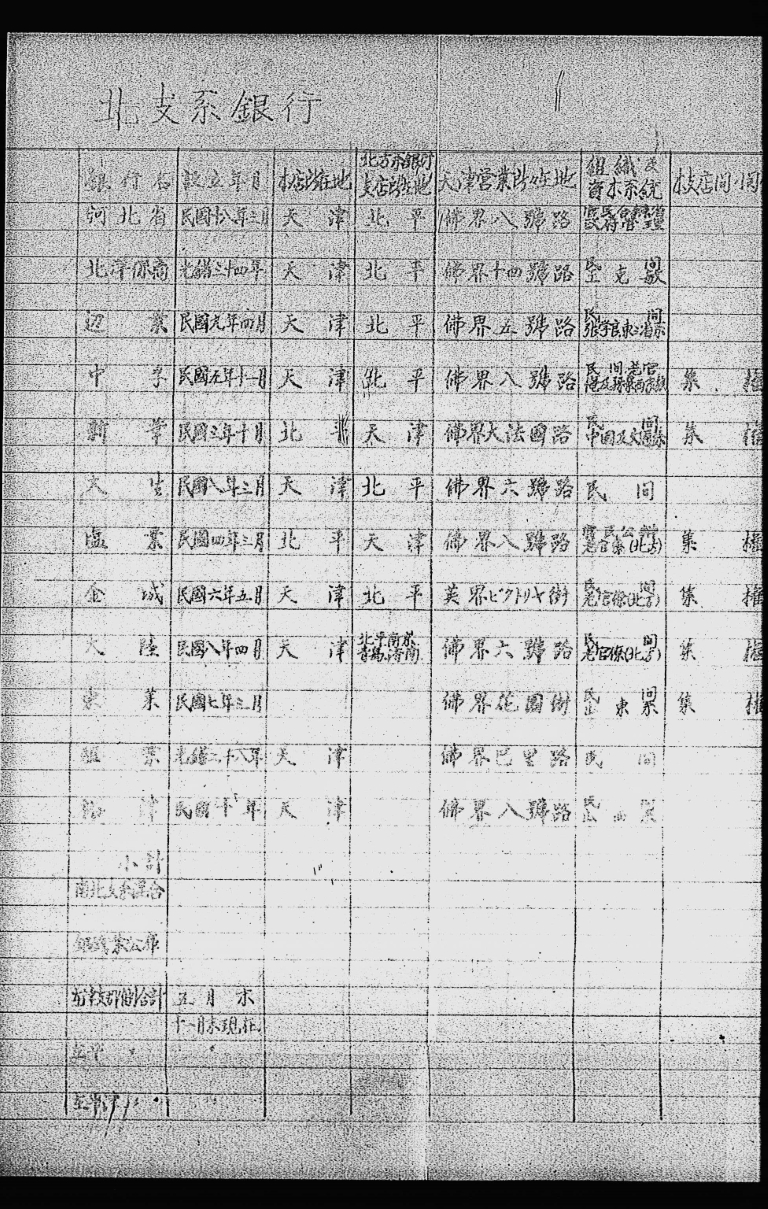 北支系銀行
銀行名 設立年月 本店所在地 北方系銀行支店所在地 天津営業所々在地 組織及資本系統 本支店間ノ関
河北省 民國十八年三月 天津 北平 佛界八號路
北洋保商 光緒三十四年 天津 北平 佛界十四號路 民間
辺業 民國九年四月 天津 北平 佛界五號路 民間 張学良東三省系
中孚 民國五年十一月 天津 北平 佛界八號路 民間 集權
新華 民國三年十月 北平 天津 佛界大法國路 民間 中國及交通系 集權
大生 民國八年三月 天津 北平 佛界六號路 民間
塩業 民國四年三月 北平 天津 佛界八號路 老官僚(北方) 集權
金城 民國六年五月 天津 北平 英界ビクトリヤ街 民間 老官僚(北方) 集權
大陸 民國八年四月 天津 北平南京青島済南 佛界六號路 民間 老官僚(北方) 集權
東莱 民國七年三月 佛界花園街 民間 山東系 集權
殖業 光緒三十八年 天津 佛界巴里路 民間
裕津 民國十年 天津 佛界八號路 民間 山西系
小計
南北支系連合
銀銭業公庫
五月末
十一月末現在